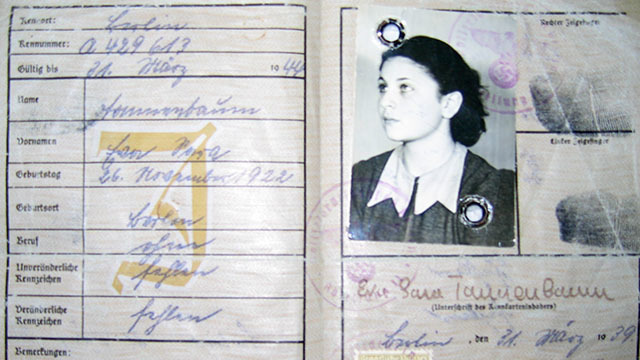 Kennort: Berlin
Kennummer: A 429613
Gültig bis 31. März 1944
Name
Vornamen Sara
Geburtstag 26. November 1922
Geburtsort Berlin
Beruf ohne
Unveränderliche Kennzeichen fehlen
Veränderliche Kennzeichen fehlen
Bemerkungen:
J
Rechter Zeigefinger
Linker Zeigefinger
Sara Tannenbaum
(Unterschrift des Kennkarteninhabers)
Berlin, den 31. März 1939